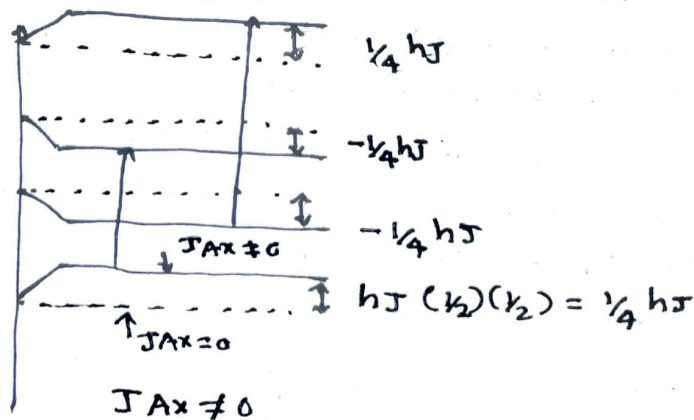 1/4 hJ
-1/4 hJ
-1/4 hJ
JAX ≠ 0
hJ (1/2)(1/2) = 1/4 hJ
JAX = 0
JAX ≠ 0